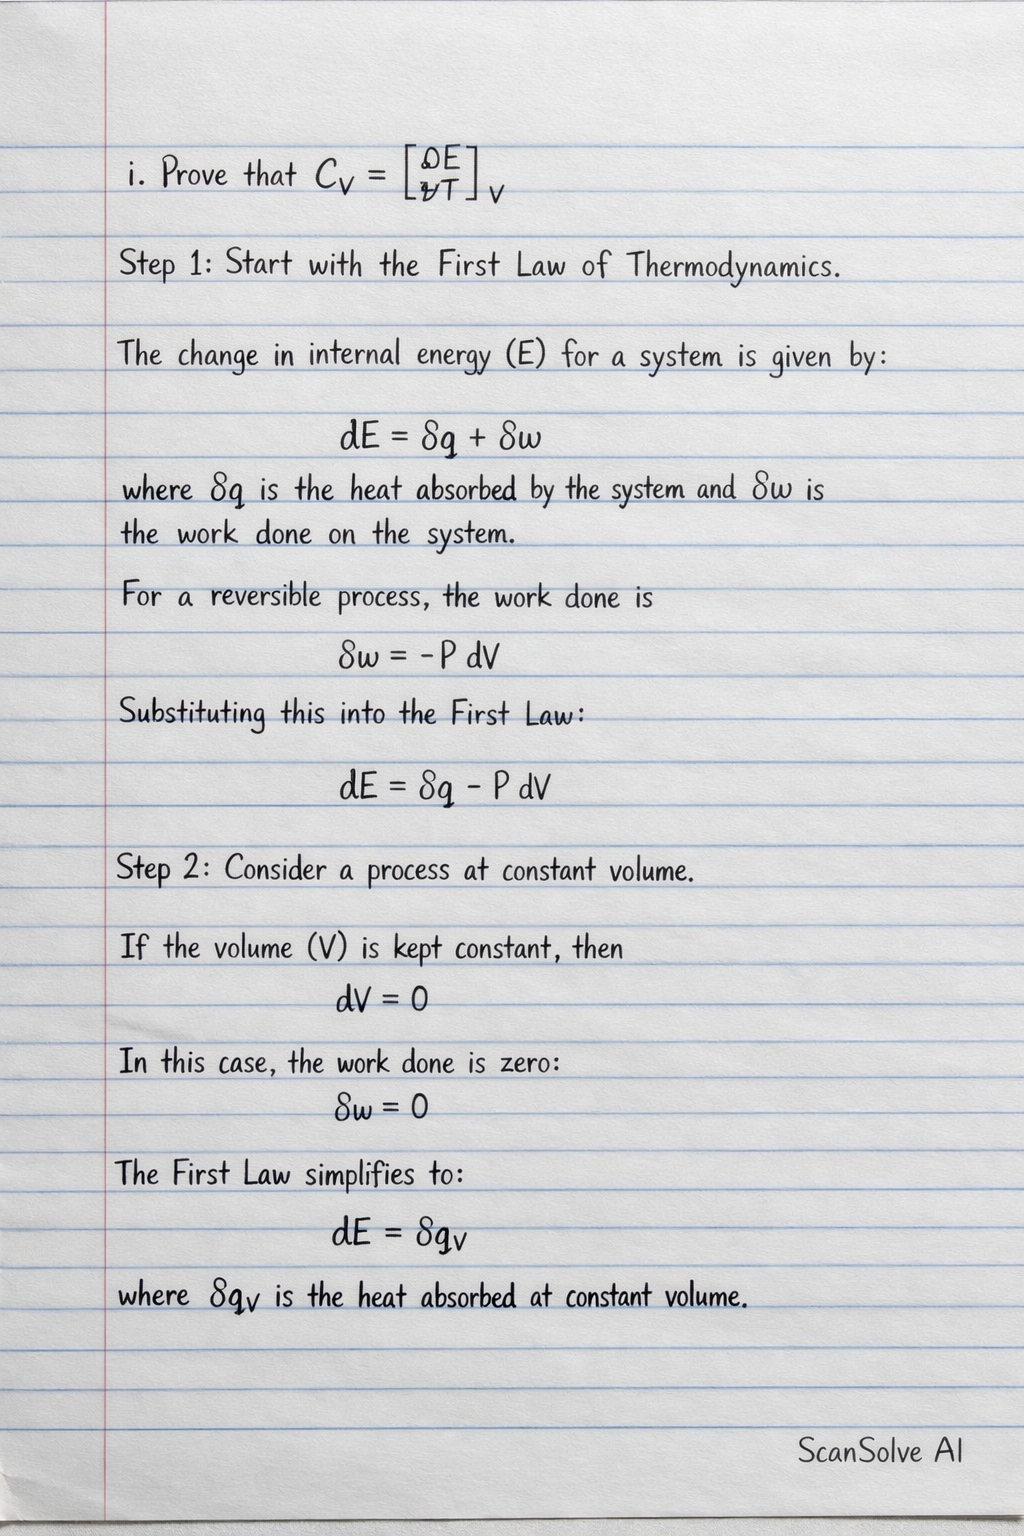 i. Prove that C_V = [∂E/∂T]_V
Step 1: Start with the First Law of Thermodynamics.
The change in internal energy (E) for a system is given by:
dE = δq + δw
where δq is the heat absorbed by the system and δw is
the work done on the system.
For a reversible process, the work done is
δw = -P dV
Substituting this into the First Law:
dE = δq - P dV
Step 2: Consider a process at constant volume.
If the volume (V) is kept constant, then
dV = 0
In this case, the work done is zero:
δw = 0
The First Law simplifies to:
dE = δq_V
where δq_V is the heat absorbed at constant volume.
ScanSolve AI